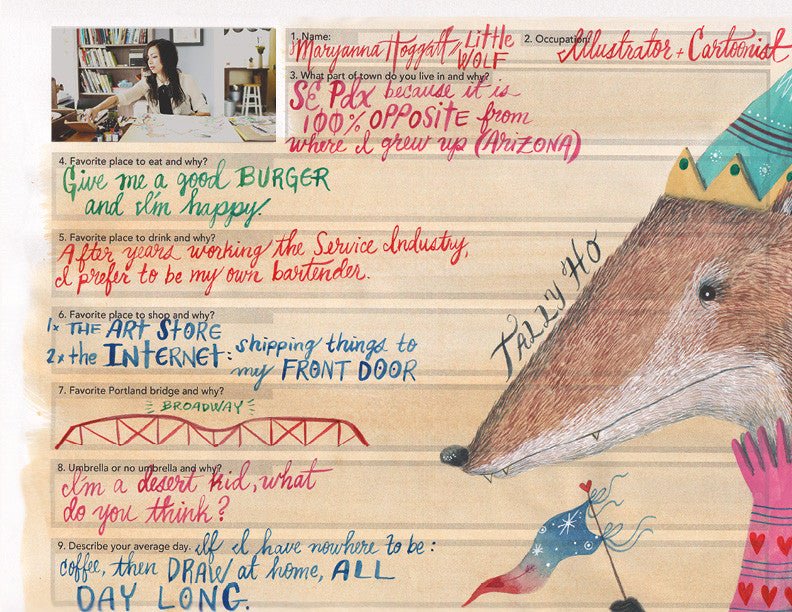 1. Name:
Maryanna Hoggatt/Little
Wolf
2. Occupation:
Illustrator + Cartoonist
3. What part of town do you live in and why?
SE Pdx because it is
100% OPPOSITE from
where I grew up (ARIZONA)
4. Favorite place to eat and why?
Give me a good BURGER
and I'm happy.
5. Favorite place to drink and why?
After years working the Service Industry,
I prefer to be my own bartender.
6. Favorite place to shop and why?
1x THE ART STORE
2x the INTERNET: shipping things to
my FRONT DOOR
7. Favorite Portland bridge and why?
BROADWAY
8. Umbrella or no umbrella and why?
I'm a desert kid, what
do you think?
9. Describe your average day. If I have nowhere to be:
coffee, then DRAW at home, ALL
DAY LONG.
TALLY HO